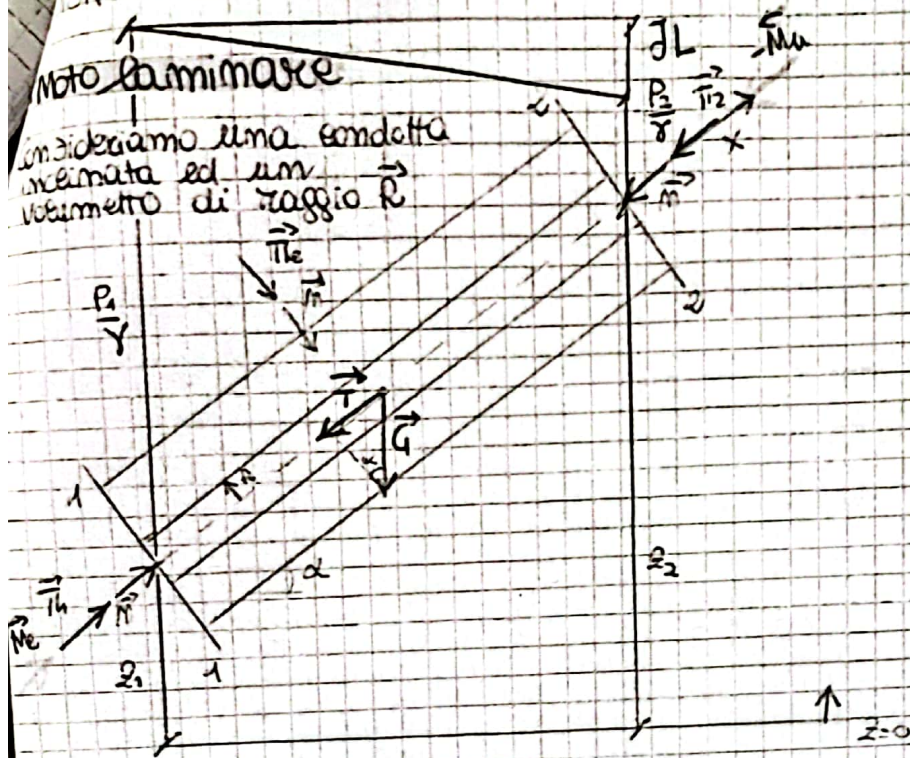 Moto laminare
consideriamo una condotta
inclinata ed un
volumetto di raggio R⃗
JL
-M⃗u
P₂/γ
Π⃗₂
x
n⃗
2
2
Π⃗e
n⃗
P₁/γ
T⃗
G⃗
α
r
1
α
z₂
Π⃗₁
n⃗
M⃗e
z₁
1
z=0